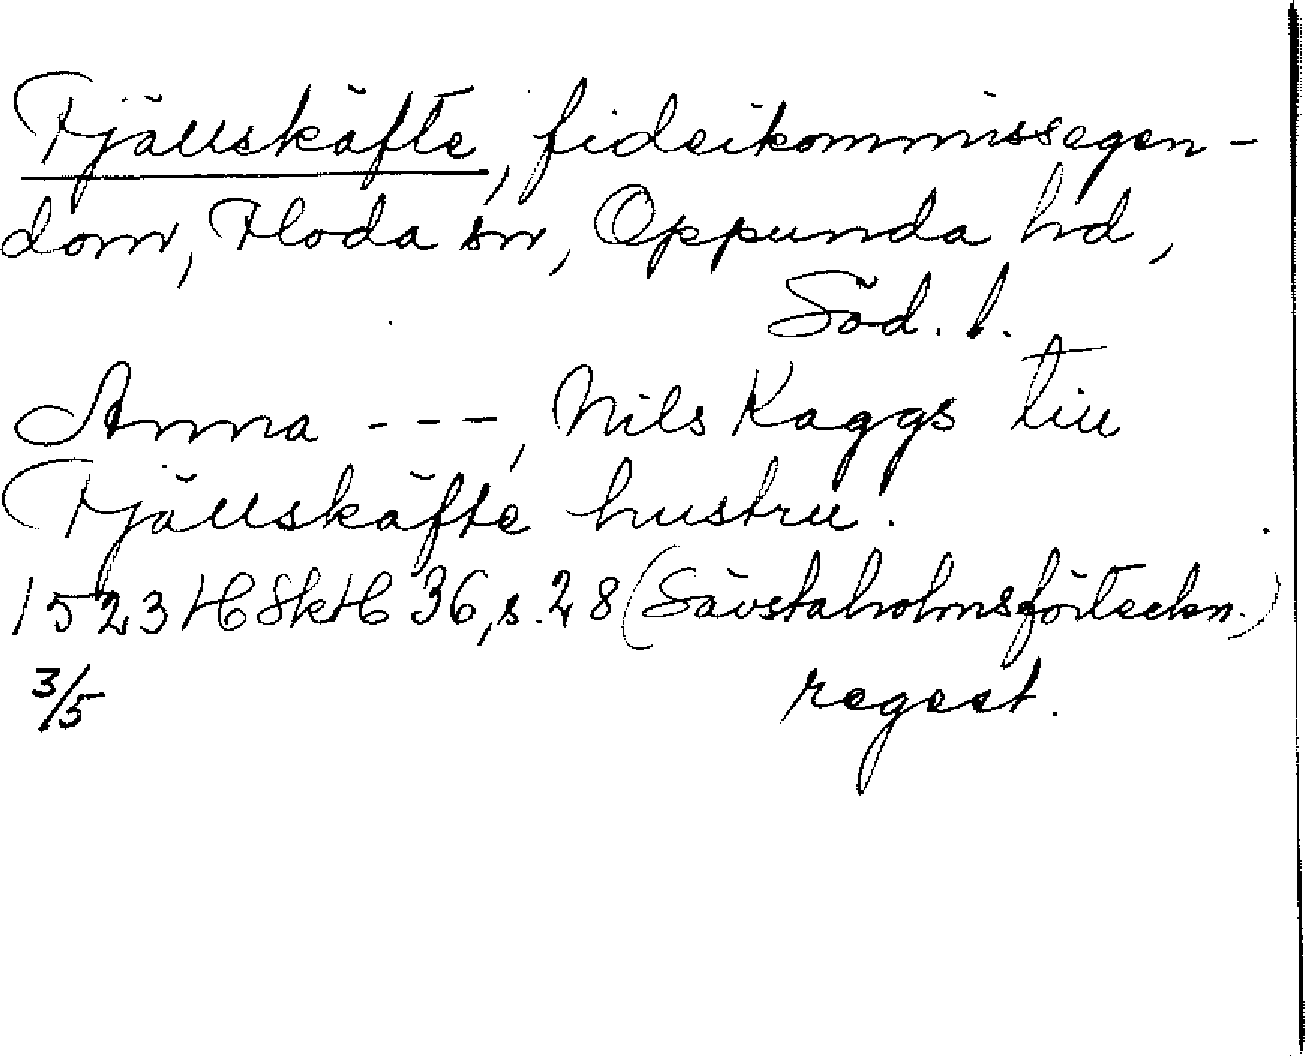 Fjällskäfte, fideikommissegen-
dom, Floda sn, Oppunda hd,
Söd. l.
Anna ---, Nils Kaggs till
Fjällskäfte hustru.
1523 HSkH 36, s. 28 (Sävstaholmsförteckn.)
3/5 regest.